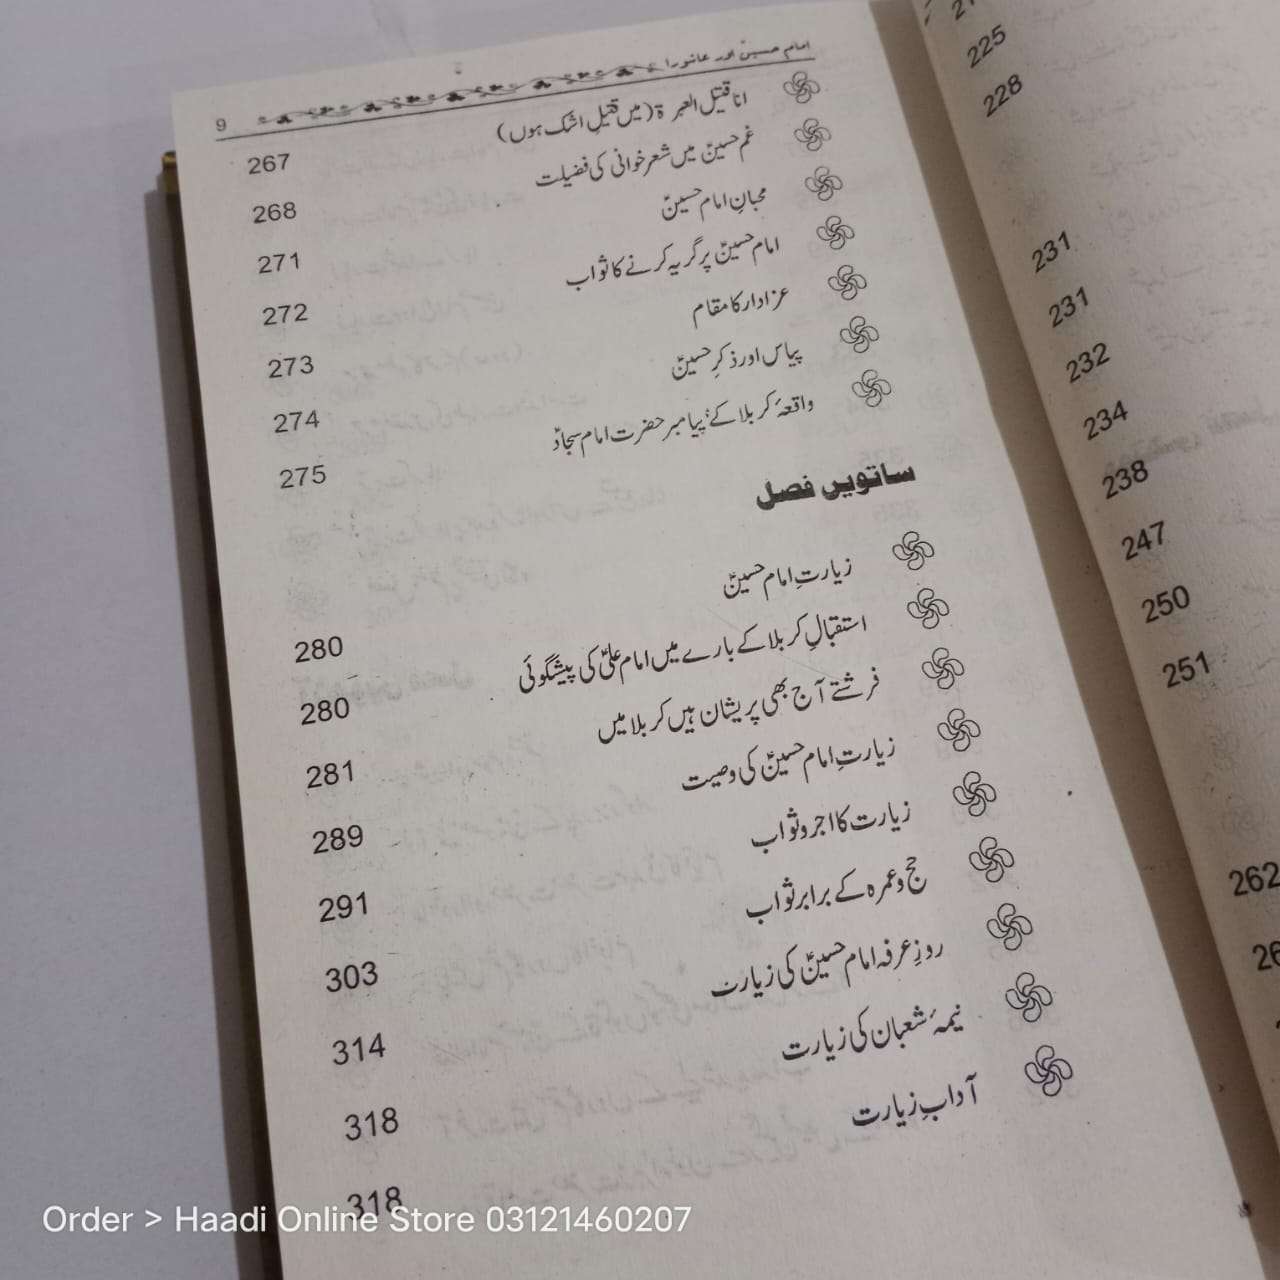 امام حسینؑ اور عاشورا
9
انا قتیل العبرۃ (میں قتیلِ اشک ہوں) 267
غم حسینؑ میں شعر خوانی کی فضیلت 268
محبانِ امام حسینؑ 271
امام حسینؑ پر گریہ کرنے کا ثواب 272
عزادار کا مقام 273
پیاس اور ذکرِ حسینؑ 274
واقعۂ کربلا کے پیامبر حضرت امام سجادؑ 275
ساتویں فصل
زیارتِ امام حسینؑ 280
استقبالِ کربلا کے بارے میں امام علیؑ کی پیشگوئی 280
فرشتے آج بھی پریشان ہیں کربلا میں 281
زیارتِ امام حسینؑ کی وصیت 289
زیارت کا اجر و ثواب 291
حج و عمرہ کے برابر ثواب 303
روزِ عرفہ امام حسینؑ کی زیارت 314
نیمۂ شعبان کی زیارت 318
آدابِ زیارت 318
225
228
231
231
232
234
238
247
250
251
262
Order > Haadi Online Store 03121460207